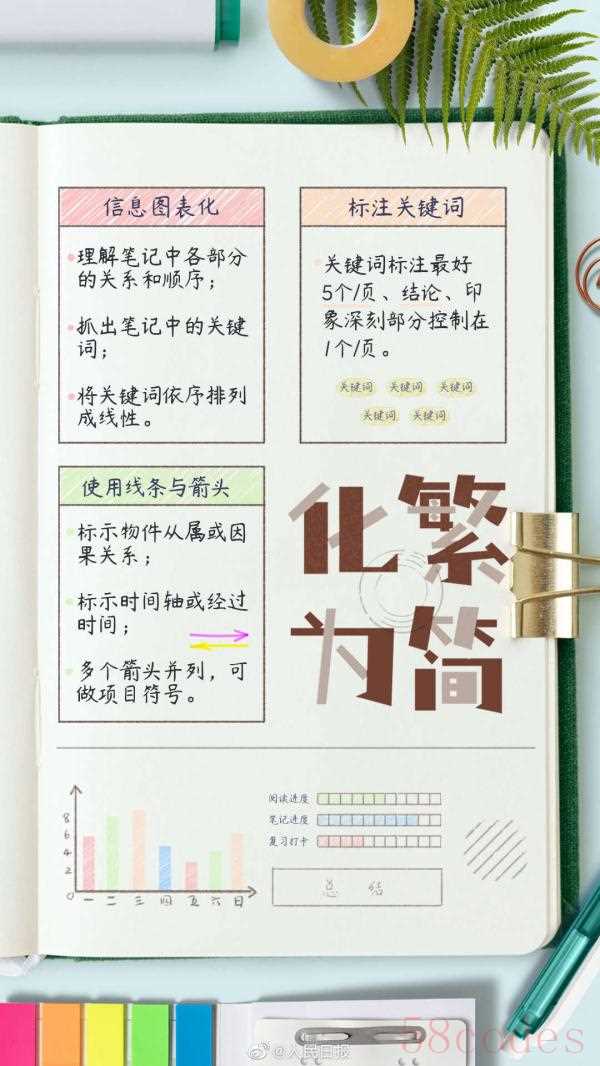 信息图表化
理解笔记中各部分
的关系和顺序；
抓出笔记中的关键
词；
将关键词依序排列
成线性。
标注关键词
关键词标注最好
5个/页、结论、印
象深刻部分控制在
1个/页。
关键词 关键词 关键词
关键词 关键词
使用线条与箭头
标示物件从属或因
果关系；
标示时间轴或经过
时间；
多个箭头并列，可
做项目符号。
化繁
为简
8
6
4
2
0
一 二 三 四 五 六 日
阅读进度
笔记进度
复习打卡
总结
@人民日报
58codes